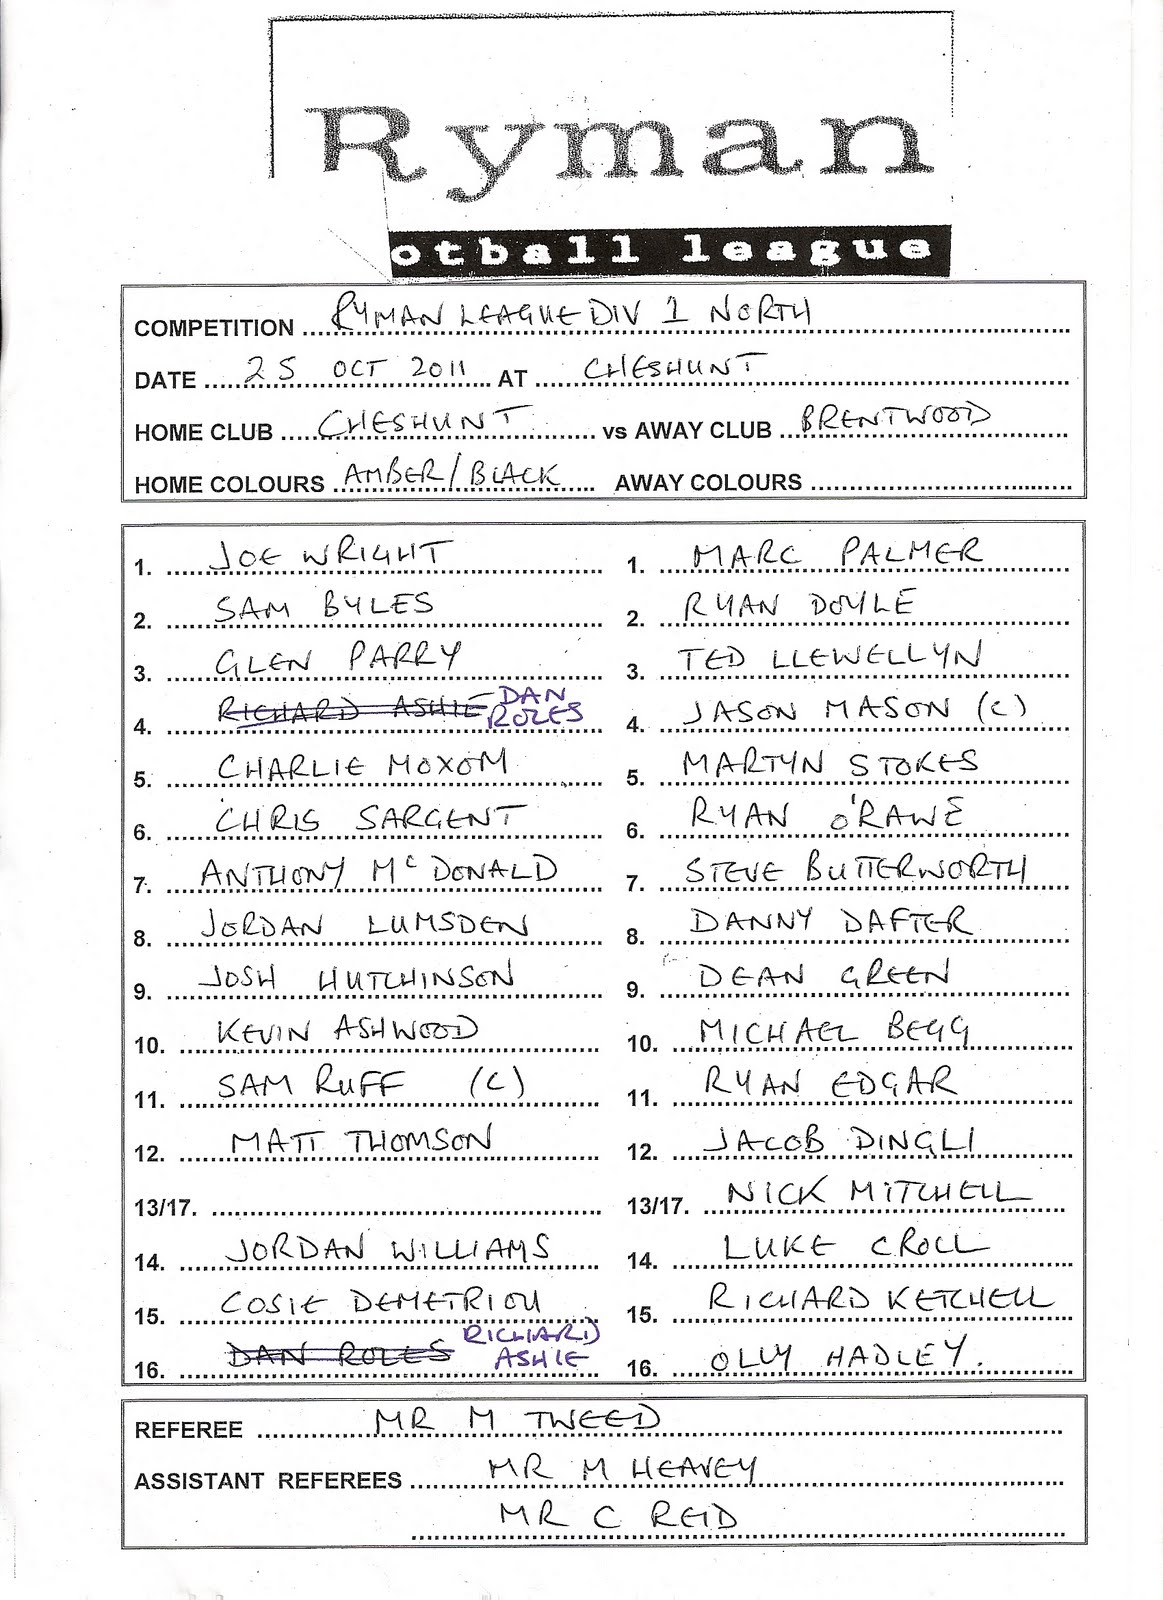 Ryman
otball league
COMPETITION RYMAN LEAGUE DIV 1 NORTH
DATE 25 OCT 2011 AT CHESHUNT
HOME CLUB CHESHUNT vs AWAY CLUB BRENTWOOD
HOME COLOURS AMBER/BLACK AWAY COLOURS
1. JOE WRIGHT 1. MARC PALMER
2. SAM BYLES 2. RYAN DOYLE
3. GLEN PARRY 3. TED LLEWELLYN
4. RICHARD ASHIE DAN ROLES 4. JASON MASON (C)
5. CHARLIE MOXOM 5. MARTYN STOKES
6. CHRIS SARGENT 6. RYAN O'RAWE
7. ANTHONY McDONALD 7. STEVE BUTTERWORTH
8. JORDAN LUMSDEN 8. DANNY DAFTER
9. JOSH HUTCHINSON 9. DEAN GREEN
10. KEVIN ASHWOOD 10. MICHAEL BEGG
11. SAM RUFF (C) 11. RYAN EDGAR
12. MATT THOMSON 12. JACOB DINGLI
13/17. 13/17. NICK MITCHELL
14. JORDAN WILLIAMS 14. LUKE CROLL
15. COSIE DEMETRIOU 15. RICHARD KETCHELL
16. DAN ROLES RICHARD ASHIE 16. OLLY HADLEY.
REFEREE MR M TWEED
ASSISTANT REFEREES MR M HEAVEY
MR C REID